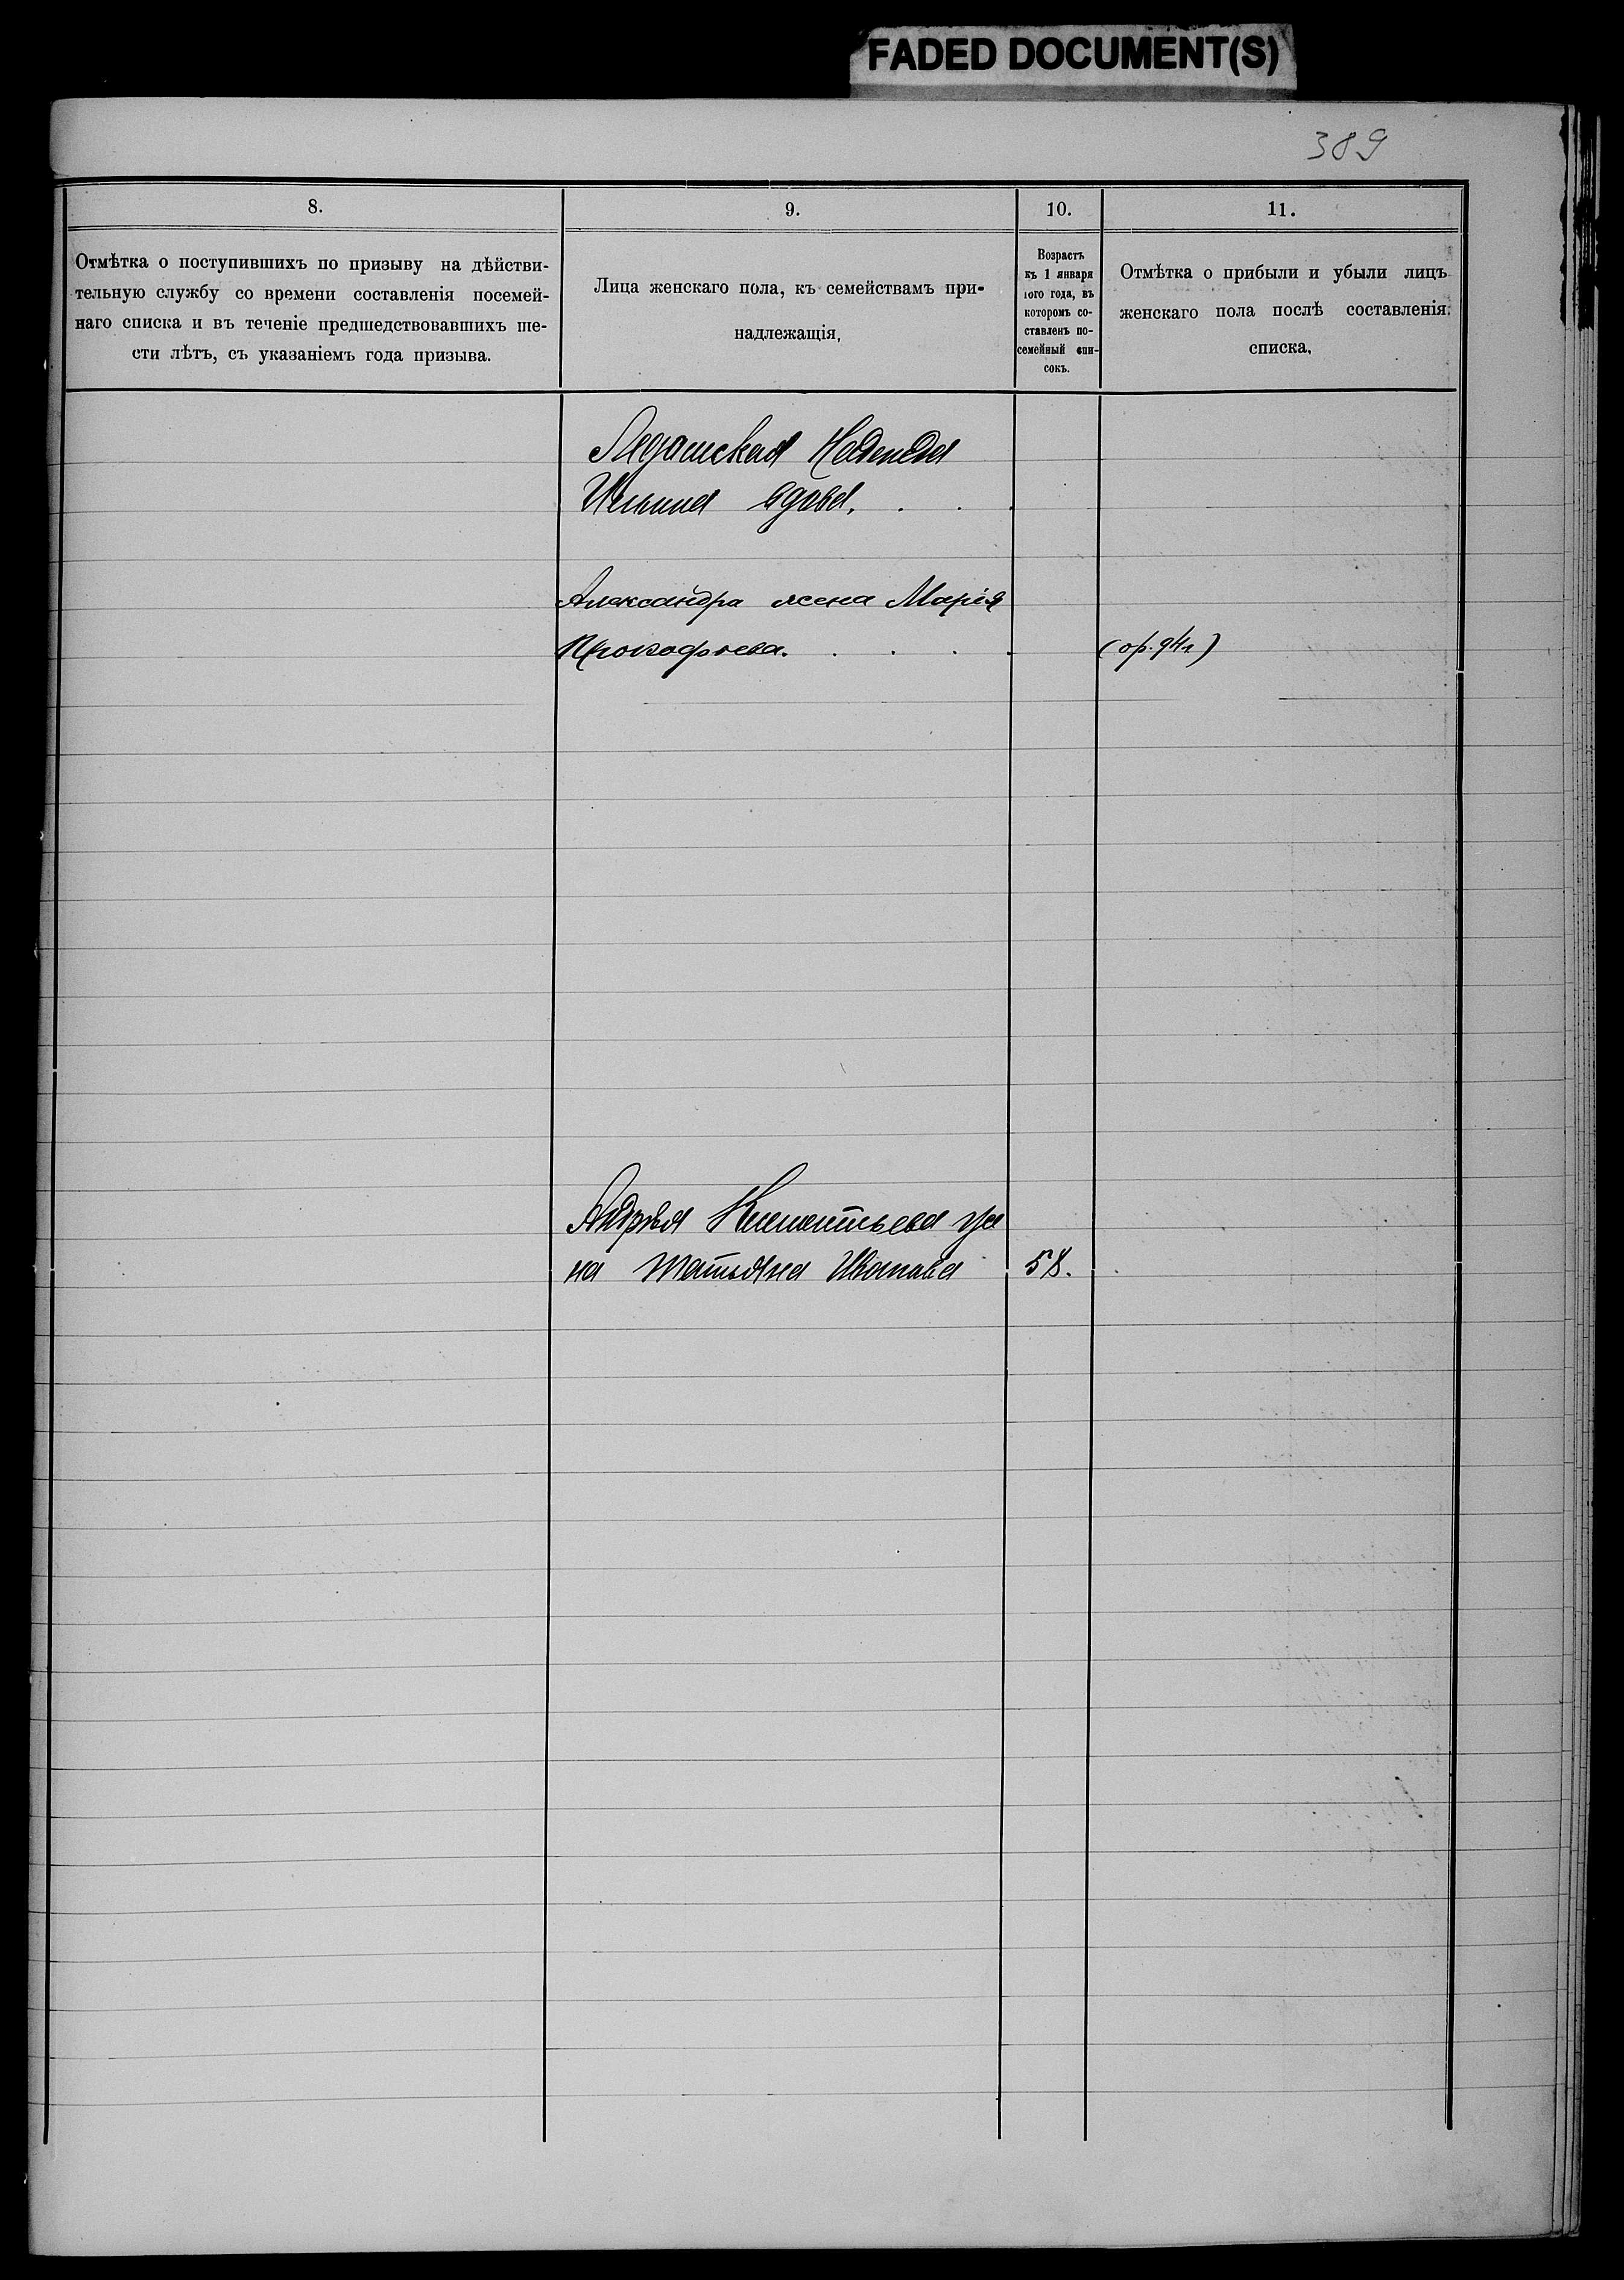 FADED DOCUMENT(S)
389
8.
9.
10.
11.
Отмѣтка о поступившихъ по призыву на дѣйстви-
тельную службу со времени составленія посемей-
наго списка и въ теченіе предшедствовавшихъ ше-
сти лѣтъ, съ указаніемъ года призыва.
Лица женскаго пола, къ семействамъ при-
надлежащія,
Возрастъ
къ 1 января
1ого года, въ
которомъ со-
ставленъ по-
семейный спи-
сокъ.
Отмѣтка о прибыли и убыли лицъ
женскаго пола послѣ составленія
списка.
Надежда
Ильина вдова. . . .
Александра жена Марія
Прокофьева. . . . .
Андрея Климентьева же
на Татьяна Иванова 58.